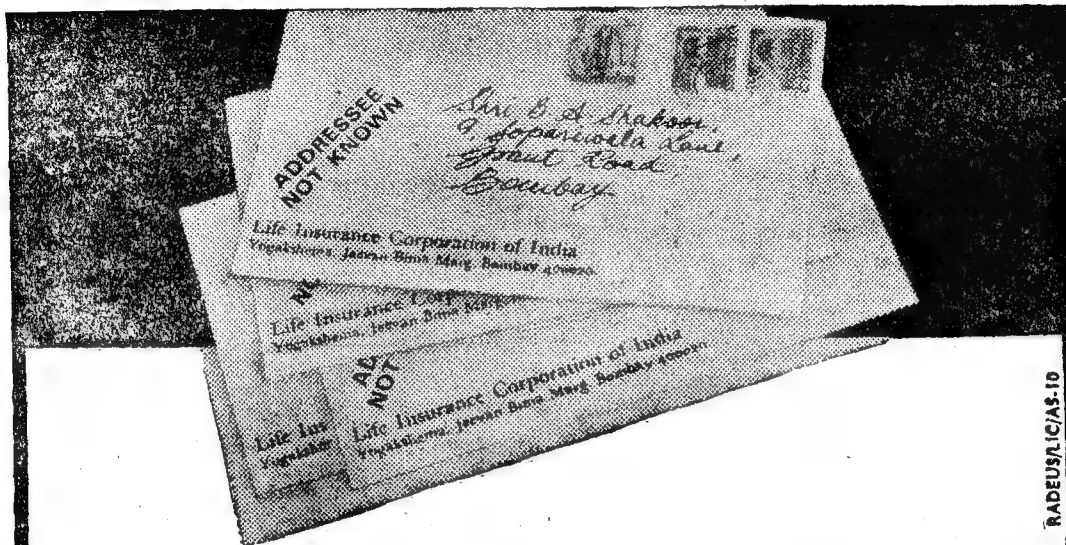 ADDRESSEE
NOT KNOWN
Shri B A Shakoor,
9 Sopariwala Lane,
Grant Road,
Bombay
Life Insurance Corporation of India
Yogakshema, Jeevan Bima Marg Bombay 400020.
NO
Life Insurance Corp
Yogakshema, Jeevan Bima Marg
AD
NOT
Life Insurance Corporation of India
Yogakshema, Jeevan Bima Marg Bombay 400020
Life Ins
Yogakshe
RADEUS/LIC/AS-10